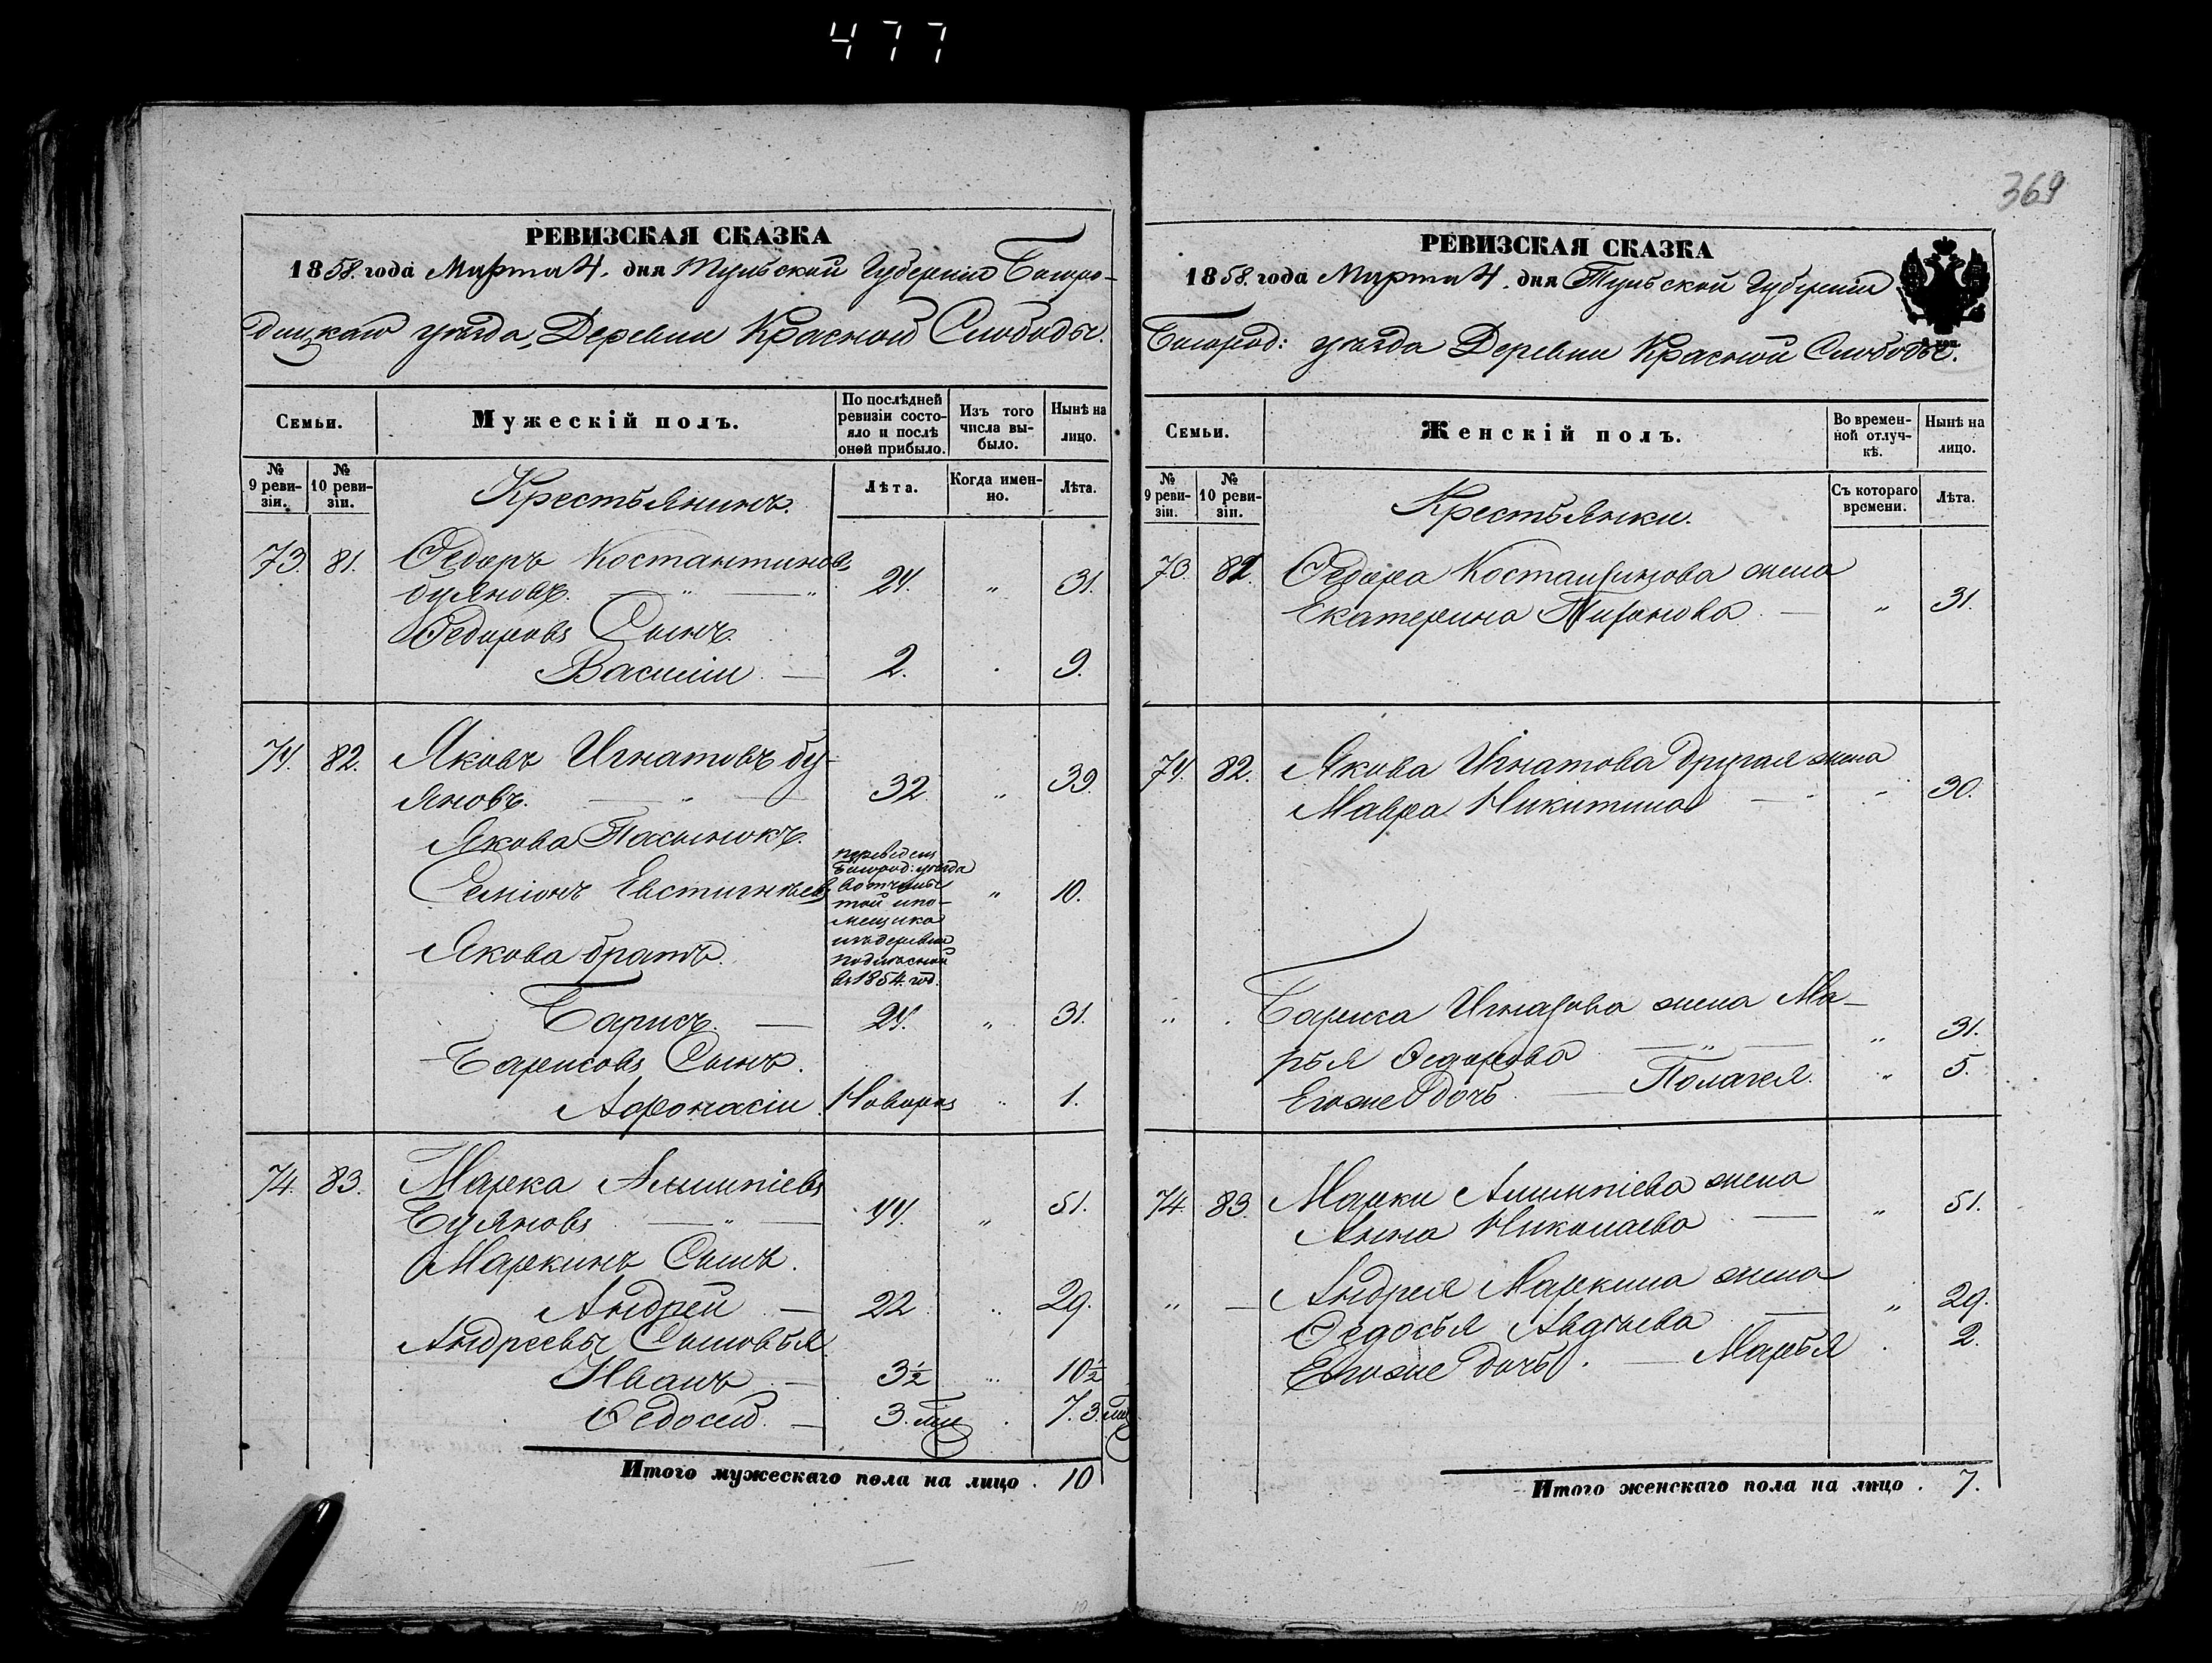 477
369
РЕВИЗСКАЯ СКАЗКА
1858. года Марта 4. дня Тульской Губернии Богоро-
дицкаго уѣзда, Деревни Красной Слободы.
Семьи.
Мужескій полъ.
По послѣдней ревизіи состояло и послѣ оной прибыло.
Изъ того числа выбыло.
Нынѣ на лицо.
№ 9 ревизіи.
№ 10 ревизіи.
Крестьянинъ.
Лѣта.
Когда именно.
Лѣта.
73. 81. Ѳедоръ Костантиновъ
буяновъ. — „ — 24. „ 31.
Ѳедоровъ Сынъ.
Василіи — 2. . 9.
74. 82. Яковъ Игнатовъ бу-
яновъ. — „ — 32 „ 39.
Якова Пасынокъ.
Семіонъ Евстигнѣевъ „ 10.
переведенъ
Богород: уѣзда
вотчины
той
мещика
деревни
в 1854. год.
Якова братъ.
Барисъ. — 24. „ 31.
Барисовъ Сынъ.
Афонасіи Новорож „ 1.
74. 83. Марка
Буяновъ — „ — 44. „ 51.
Маркинъ Сынъ.
Андреи — 22 „ 29.
Андреевы Сыновья
Иванъ — 3½ „ 10½
Ѳедосеи. — 3. . 7. 3.
Итого мужескаго пола на лицо . 10
РЕВИЗСКАЯ СКАЗКА
1858. года Марта 4. дня Тульской Губернии
Богород: уѣзда Деревни Красной Слободы.
Семьи.
Женскій полъ.
Во временной отлучкѣ.
Нынѣ на лицо.
№ 9 ревизіи.
№ 10 ревизіи.
Крестьянки.
Съ котораго времени.
Лѣта.
73. 81. Ѳедора Костантинова жена
Екатерина — „ 31.
74. 82. Якова Игнатова другая жена
Мавра Никитина — „ 30.
„ . Бариса Игнатова жена Ма-
рья Ѳедорова — „ — „ 31.
Егоже дочь — Полагея. „ 5.
74. 83. Марки жена
Анна Николаева — „ 51.
„ — Андрея Маркина жена
Ѳедосья Авдѣева — „ 29.
Егоже дочь. — Марья . 2.
Итого женскаго пола на лицо . 7.